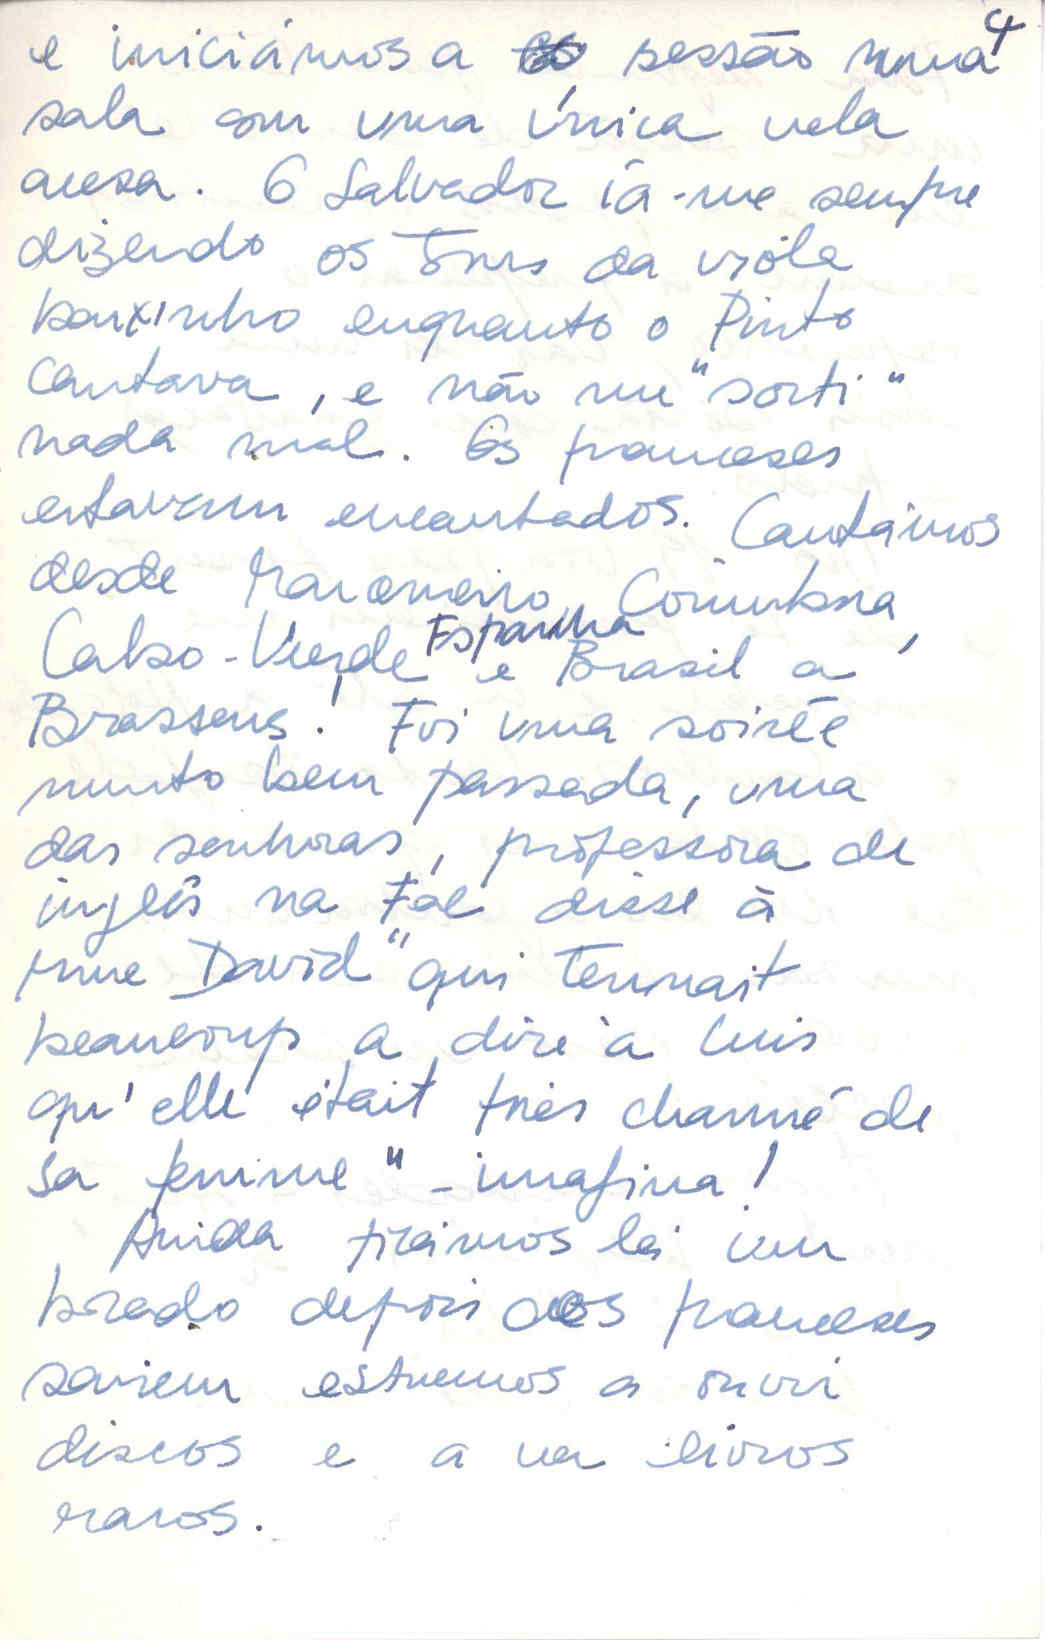 4
e iniciámos a sessão numa
sala com uma única vela
acesa. O Salvador ia-me sempre
dizendo os tons da viola
baixinho enquanto o Pinto
cantava, e não me "sorti"
nada mal. Os franceses
estavam encantados. Cantámos
desde Maranhão, Coimbra,
Cabo-Verde, Espanha e Brasil a
Brassens! Foi uma soirée
muito bem passada, uma
das senhoras, professora de
inglês na Fac disse à
Mme David "qui tennait
beaucoup a dire à Luis
qu'elle était très charmé de
sa femme" - imagina!
Ainda ficámos lá um
bocado depois dos franceses
sairem estivemos a ouvir
discos e a ver livros
raros.